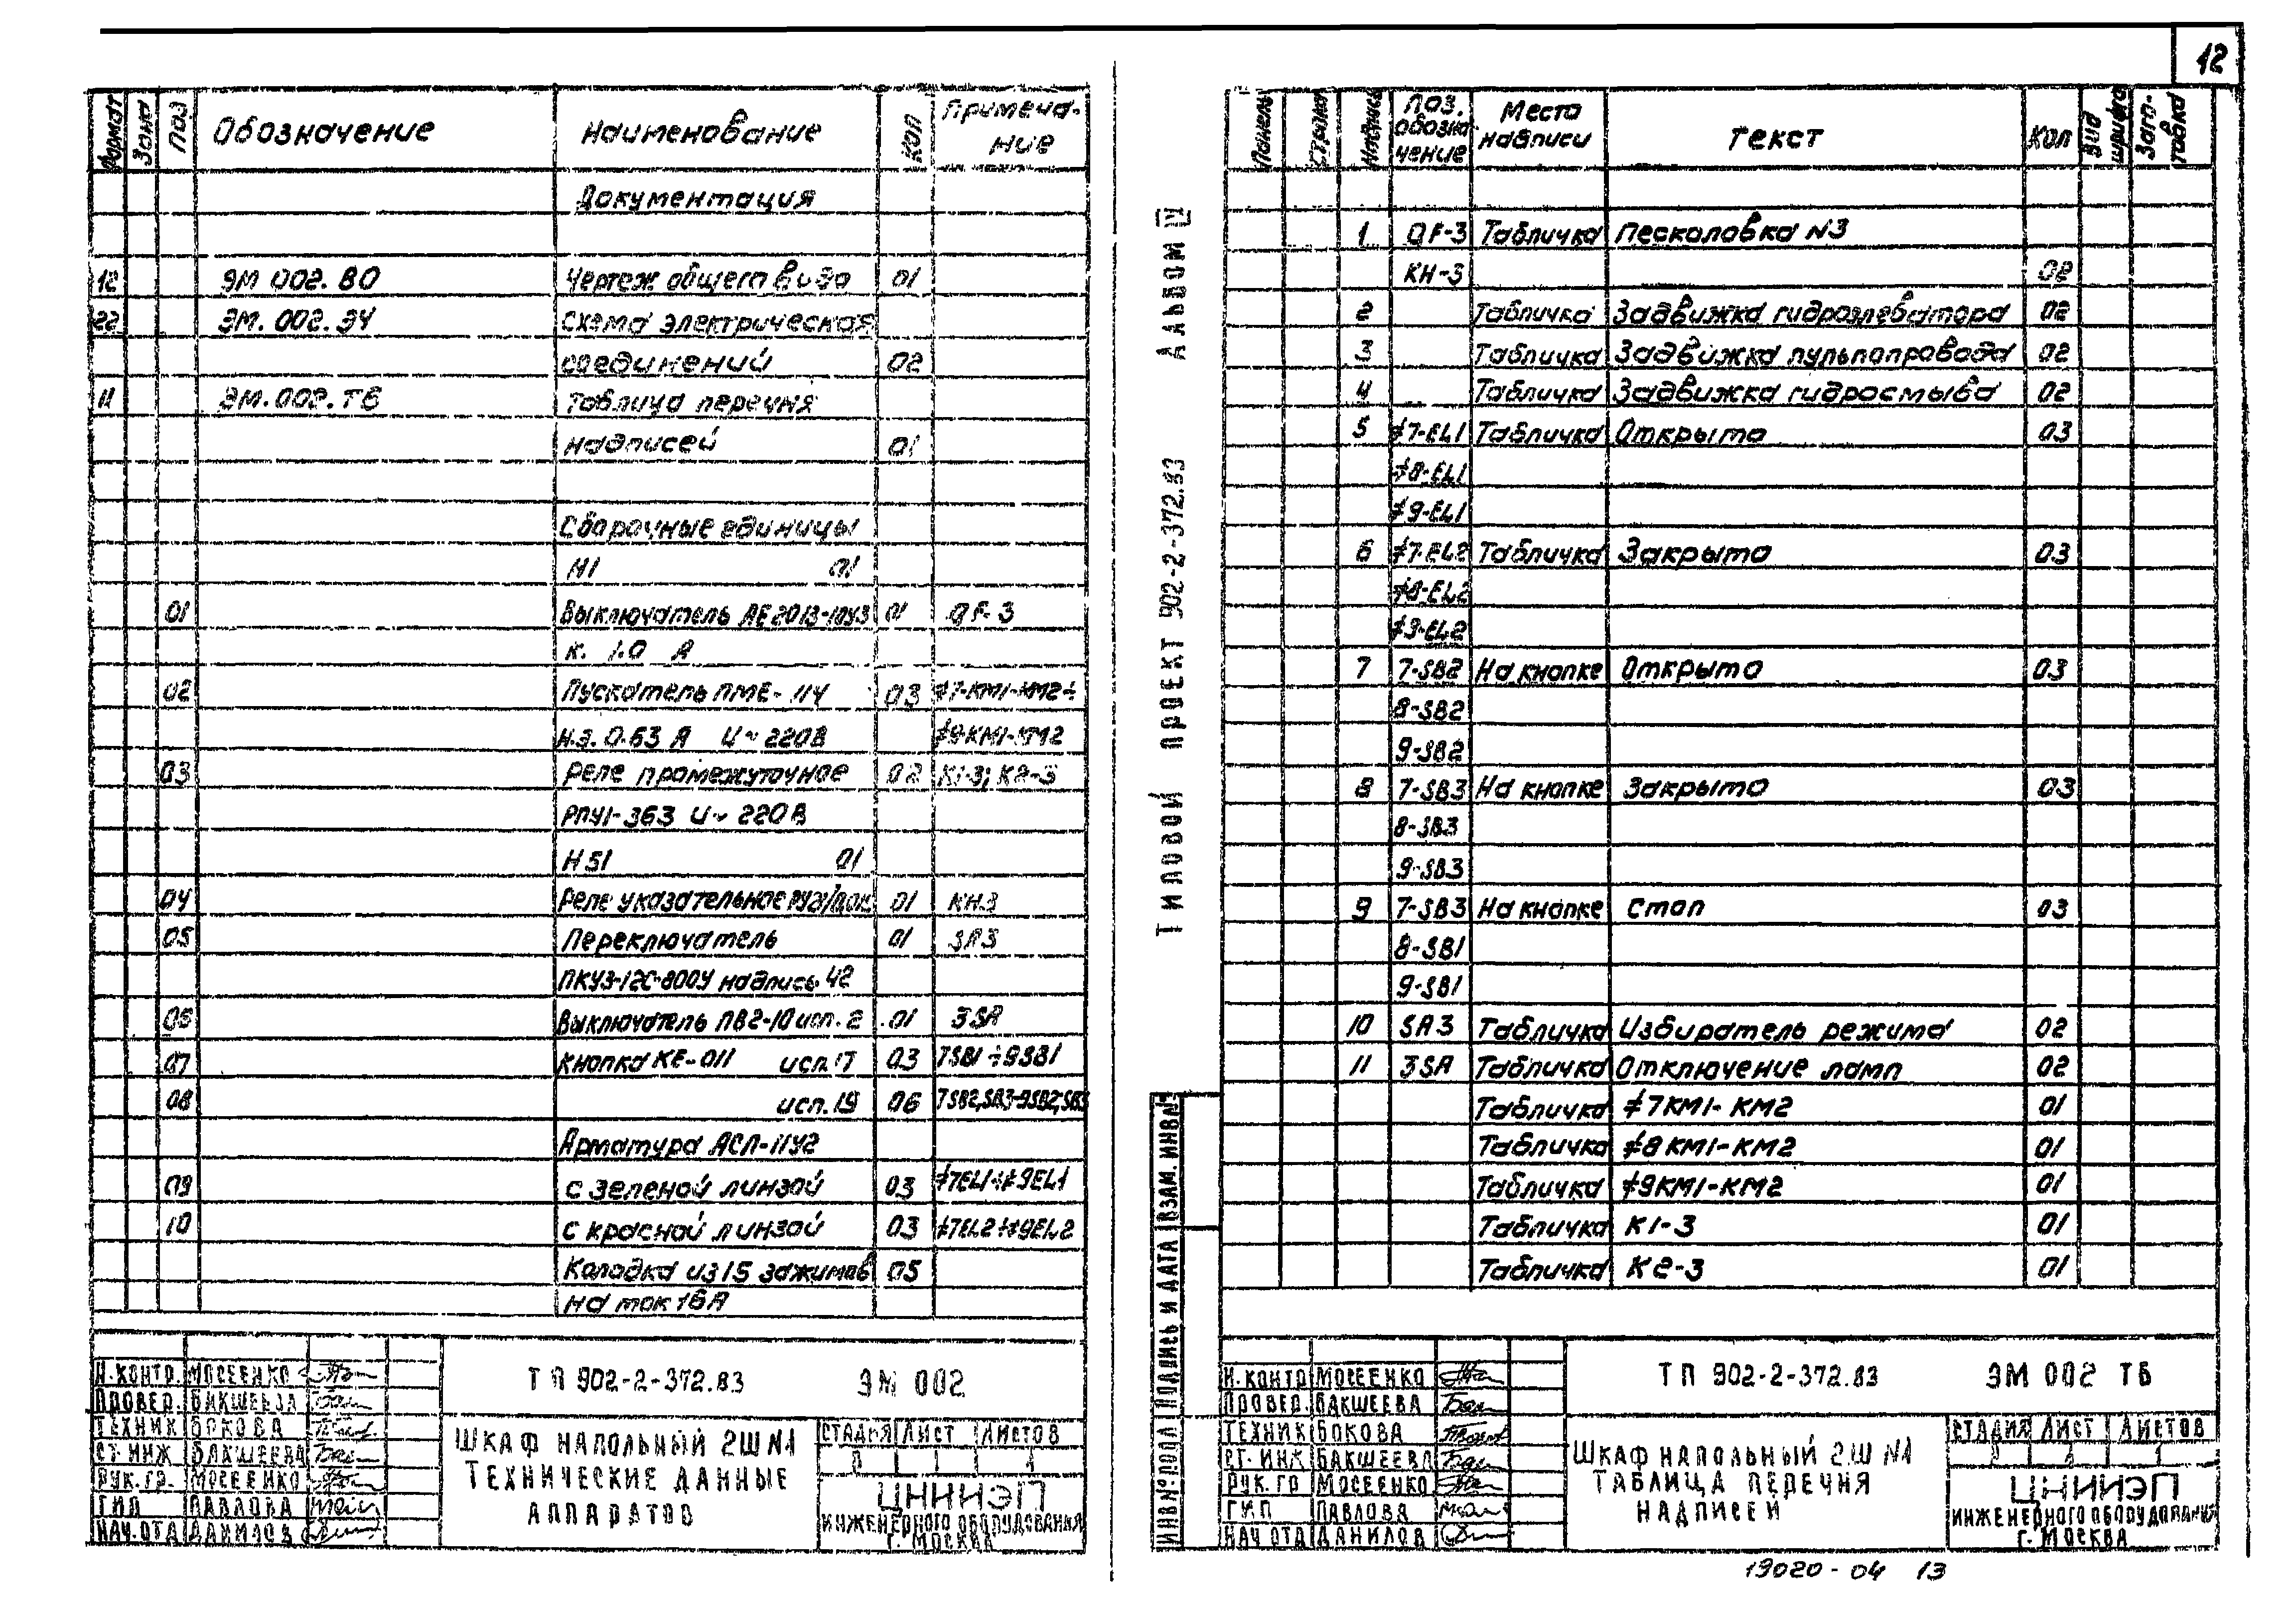 12
Формат Зона Поз Обозначение Наименование Кол Примеча-
ние
Документация
12 ЭМ 002. ВО Чертеж общего вида 01
22 ЭМ. 002. Э4 Схема электрическая
соединений 02
11 ЭМ. 002. ТБ Таблица перечня
надписей 01
Сборочные единицы
Н1 01
01 Выключатель АЕ2013-10У3 01 QF-3
к. 1.0 А
02 Пускатель ПМЕ-114 03 ≠7-КМ1-КМ2÷
н.э. 0.63 А И~220В ≠9-КМ1-КМ2
03 Реле промежуточное 02 К1-3; К2-3
РПУ1-363 И~220В
Н51 01
04 Реле указательное 01 КН.3
05 Переключатель 01 SA3
ПКУ3-12С-800У надпись 42
06 Выключатель ПВ2-10 исп. 2 01 3SA
07 Кнопка КЕ-011 исп. 17 03 7SB1÷9SB1
08 исп. 19 06 7SB2,SB3-9SB2,SB3
Арматура АСЛ-11У2
09 с зеленой линзой 03 ≠7EL1÷≠9EL1
10 с красной линзой 03 ≠7EL2÷≠9EL2
Колодка из 15 зажимов 05
на ток 16А
Н.контр. Мосеенко
Провер. Бакшеева
Техник Бокова
Ст.инж Бакшеева
Рук.гр. Мосеенко
ГИП Павлова
Нач.отд Данилов
ТП 902-2-372.83 ЭМ 002
Шкаф напольный 2Ш №1
Технические данные
аппаратов
Стадия Лист Листов
Р 1 1
ЦНИИЭП
инженерного оборудования
г. Москва
Альбом IV
Типовой проект 902-2-372.83
Взам. инв №
Подпись и дата
Инв № подл
Панель Строка Надпись Поз.
обозна-
чение Места
надписи Текст Кол Вид
шрифта Заго-
товка
1 QF-3 Табличка Песколовка N3
КН-3 02
2 Табличка Задвижка гидроэлеватора 02
3 Табличка Задвижка пульпопровода 02
4 Табличка Задвижка гидросмыва 02
5 ≠7-EL1 Табличка Открыто 03
≠8-EL1
≠9-EL1
6 ≠7-EL2 Табличка Закрыто 03
≠8-EL2
≠9-EL2
7 7-SB2 На кнопке Открыто 03
8-SB2
9-SB2
8 7-SB3 На кнопке Закрыто 03
8-SB3
9-SB3
9 7-SB3 На кнопке Стоп 03
8-SB1
9-SB1
10 SA3 Табличка Избиратель режима 02
11 3SA Табличка Отключение ламп 02
Табличка ≠7КМ1-КМ2 01
Табличка ≠8КМ1-КМ2 01
Табличка ≠9КМ1-КМ2 01
Табличка К1-3 01
Табличка К2-3 01
Н.контр Мосеенко
Провер. Бакшеева
Техник Бокова
Ст.инж Бакшеева
Рук.гр Мосеенко
ГИП Павлова
Нач отд Данилов
ТП 902-2-372.83 ЭМ 002 ТБ
Шкаф напольный 2Ш №1
Таблица перечня
надписей
Стадия Лист Листов
Р 1 1
ЦНИИЭП
инженерного оборудования
г. Москва
19020-04 13